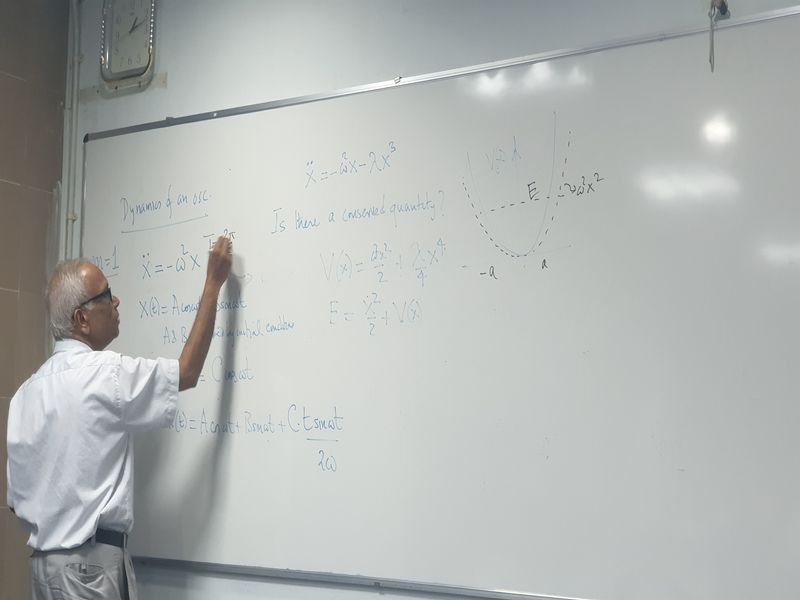 Dynamics of an osc.
m=1
ẍ = -ω²x
T = 2π
x(t) = A cosωt + B sinωt
A & B initial conditions
= C cosωt
x(t) = A cosωt + B sinωt + C·t sinωt / 2ω
ẍ = -ω²x - λx³
Is there a conserved quantity?
V(x) = x²/2 + λ/4 x⁴
E = ẋ²/2 + V(x)
E
ω²x²
-a
a